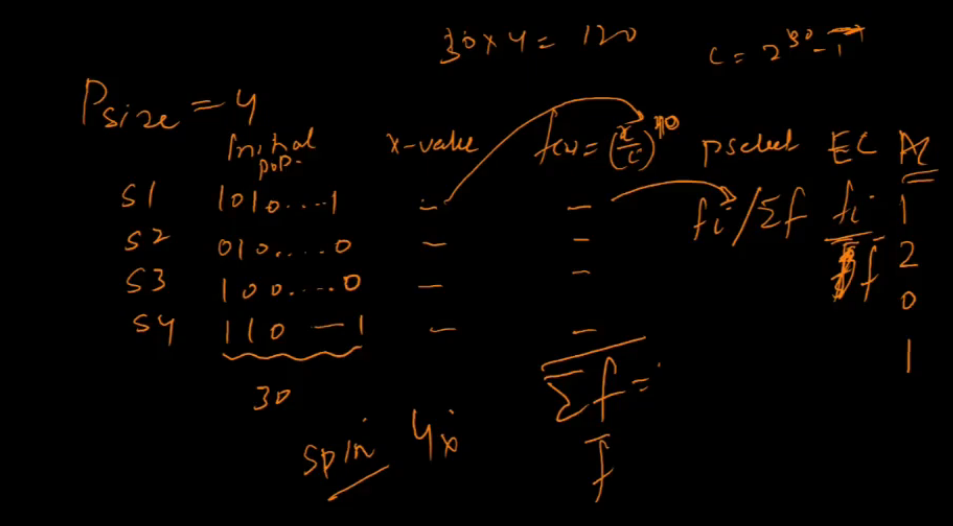 30 x 4 = 120
c = 2^30 - 1
Psize = 4
Initial pop. x-value f(x) = (x/c)^10 pselect EC AC
S1 1010....1 - - fi/Σf fi/f̅ 1
S2 010....0 - - 2
S3 100....0 - - 0
S4 110 — 1 - - 1
30
Σf =
f̅
spin 4x